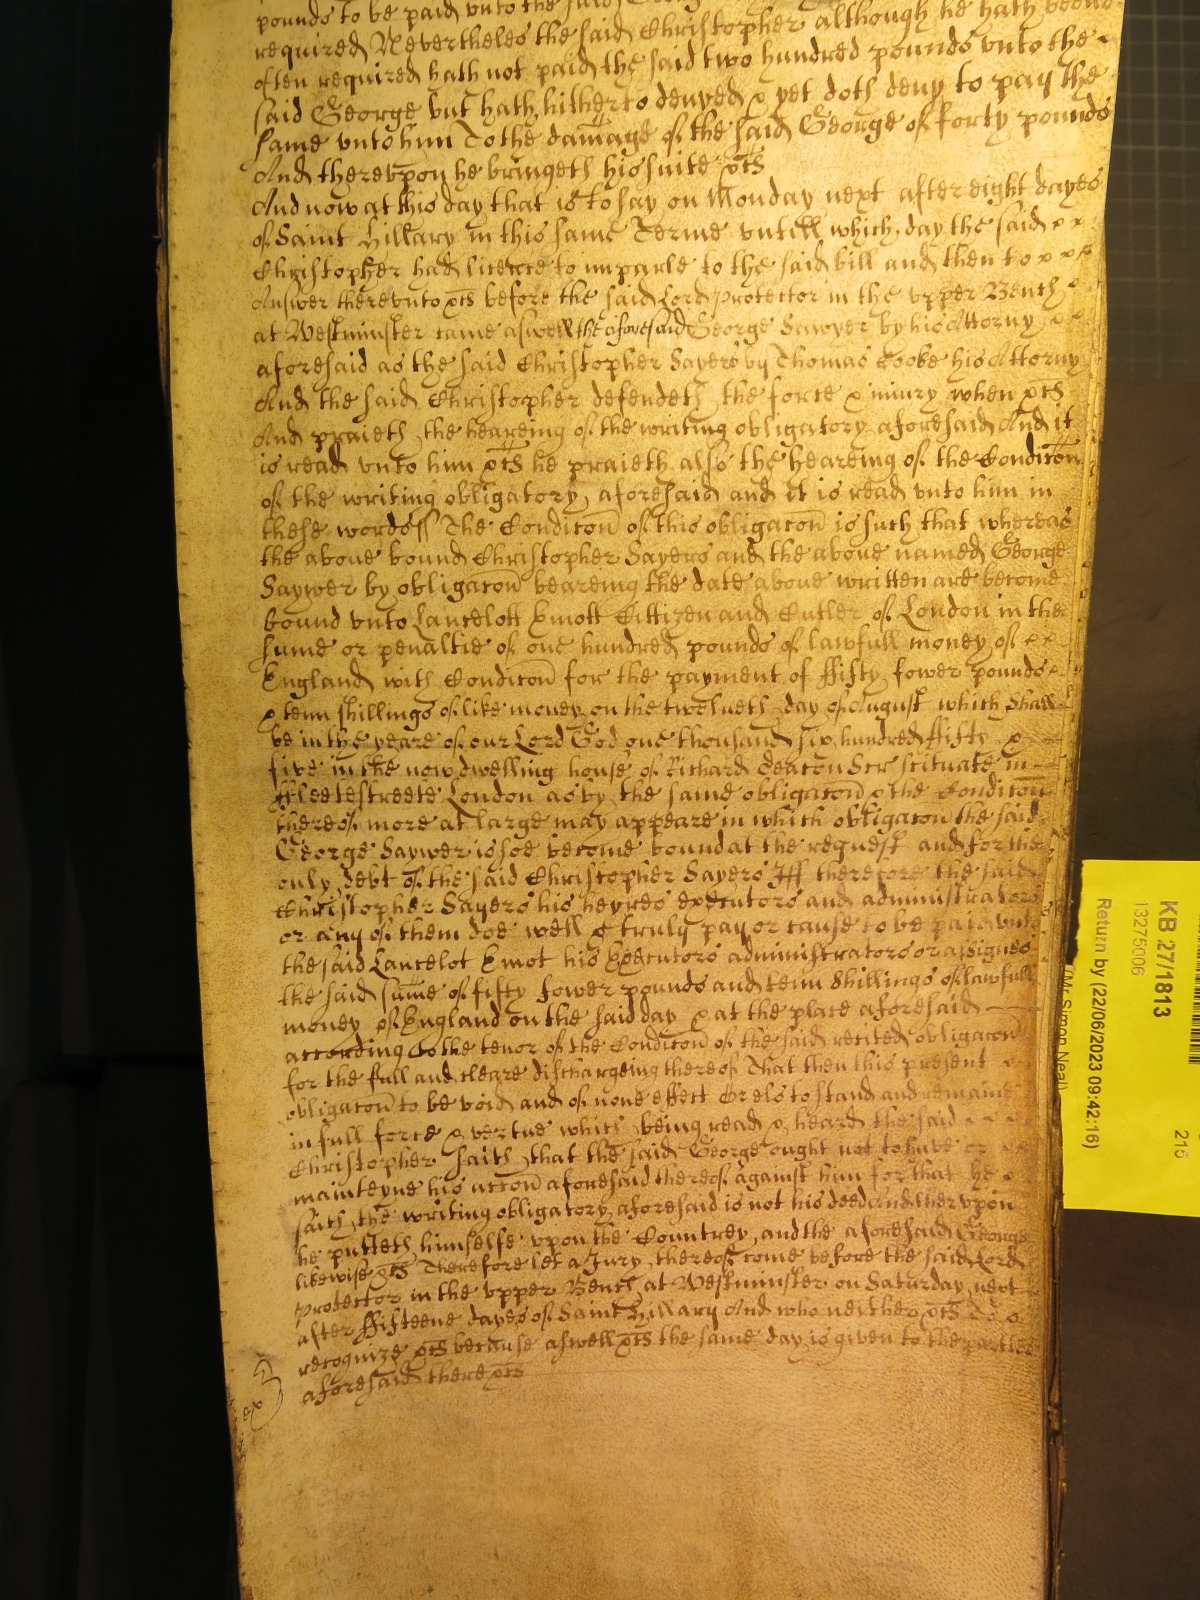 pounds to be paid vnto the said
required Nevertheles the said Christopher although he hath beene
often required hath not paid the said two hundred pounds vnto the
said George but hath hitherto denyed & yet doth deny to pay the
same vnto him To the damage of the said George of forty pounds
And therevpon he bringeth his suite &c
And now at this day that is to say on Monday next after eight dayes
of Saint Hillary in this same Terme vntill which day the said x x
Christopher had licence to imparle to the said bill and then to x x x
Answer therevnto &c before the said Lord Protector in the vpper Bench
at Westminster came aswell the aforesaid George Sawyer by his Attorny x x
aforesaid as the said Christopher Sayers by Thomas Cooke his Attorny
And the said Christopher defendeth the force & iniury when &c
And praieth the heareing of the writing obligatory aforesaid And it
is read vnto him &c he praieth also the heareing of the Condicon
of the writing obligatory aforesaid and it is read vnto him in
these words ss The Condicon of this obligacon is such that whereas
the aboue bound Christopher Sayers and the aboue named George
Saywer by obligacon beareing the date aboue written are become
bound vnto Lancelott Emott Cittizen and Cutler of London in the
sume or penaltie of one hundred pounds of lawfull money of x x
England with Condicon for the payment of ffifty fower pounds x
& tenn shillings of like money on the twelueth day of August which shall
be in the yeare of our Lord God one thousand six hundred ffifty x
five in the now dwelling house of Richard Deacon Scr scituate in
ffleetestreete London as by the same obligacon & the Condicon
thereof more at large may appeare in which obligacon the said
George Saywer is soe become bound at the request and for the
only debt of the said Christopher Sayers Iff therefore the said
Christopher Sayers his heyres executors and administrators
or any of them doe well & truly pay or cause to be paid vnto
the said Lancelot Emot his Executors administrators or assignes
the said sume of fifty fower pounds and tenn shillings of lawfull
money of England on the said day & at the place aforesaid
according to the tenor of the Condicon of the said recited obligacon
for the full and cleare dischargeing thereof That then this present
obligacon to be void and of none effect Or els to stand and remaine
in full force & vertue which being read & heard the said
Christopher saith that the said George ought not to have or
mainteyne his accon aforesaid thereof against him for that he
saith the writing obligatory aforesaid is not his deed And ther vpon
he putteth himselfe vpon the Countrey and the aforesaid George
likewise &c Therefore let a Jury thereof come before the said Lord
Protector in the vpper Bench at Westminster on Saturday next
after ffifteene dayes of Saint Hillary And who neither &c To
recognize &c because aswell &c the same day is given to the parties
aforesaid there &c
KB 27/1813
13275006
Return by (22/06/2023 09:42:16)
(Mr Simon Neal)
215